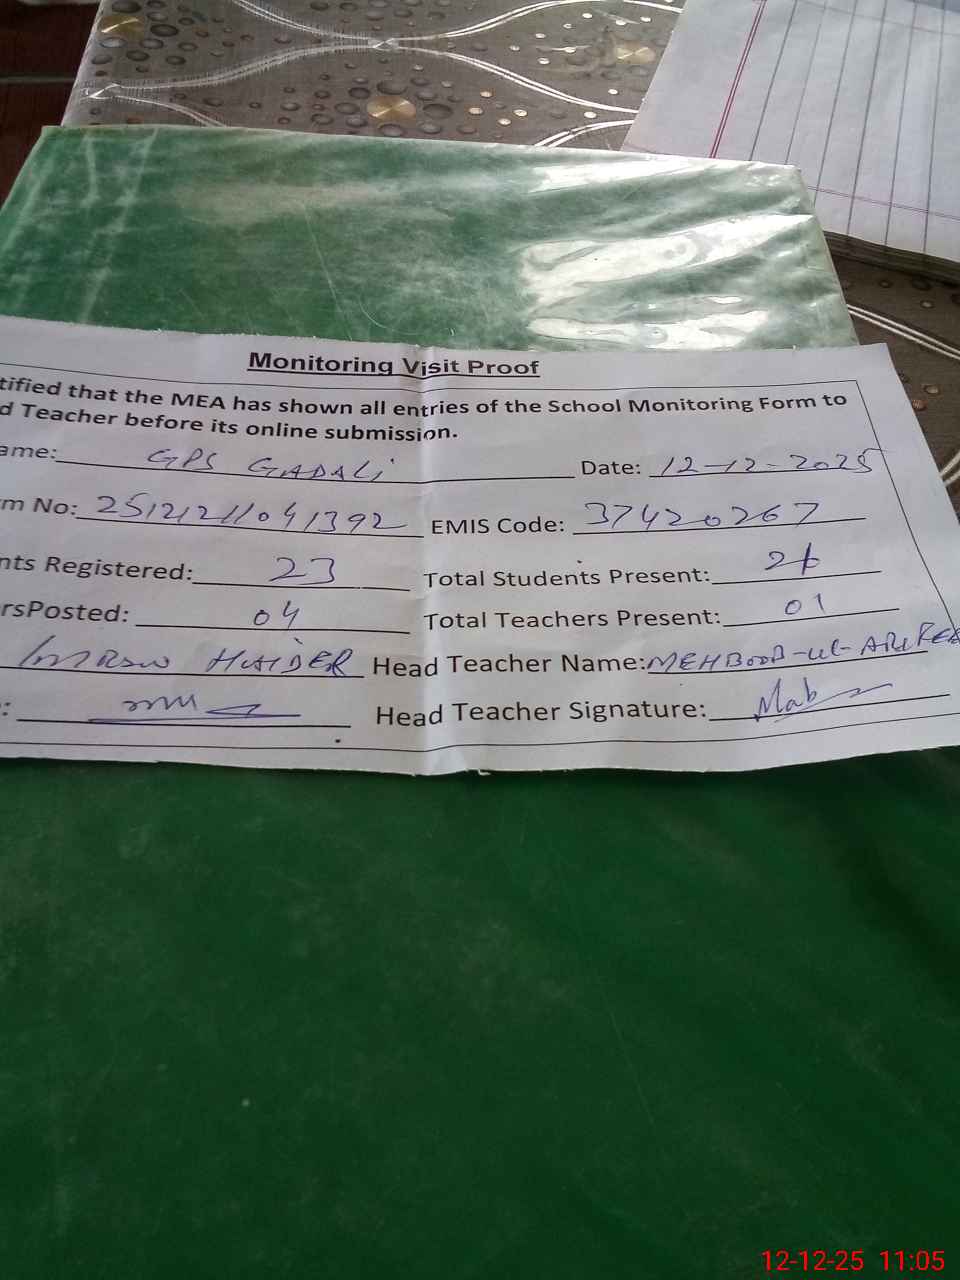 Monitoring Visit Proof
tified that the MEA has shown all entries of the School Monitoring Form to
d Teacher before its online submission.
ame: GPS GADALI Date: 12-12-2025
m No: 25121211041392 EMIS Code: 37420267
nts Registered: 23 Total Students Present:
rsPosted: 04 Total Teachers Present: 01
HAIDER Head Teacher Name: MEHBOOB-UL-
: Head Teacher Signature:
12-12-25 11:05